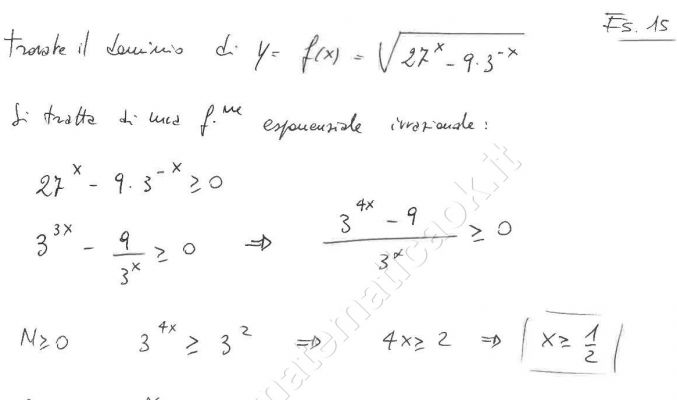 Es. 15
trovate il dominio di y = f(x) = √(27^x - 9·3^-x)
Si tratta di una f.ne esponenziale irrazionale:
27^x - 9·3^-x ≥ 0
3^3x - 9/3^x ≥ 0 ⇒ (3^4x - 9)/3^x ≥ 0
N ≥ 0 3^4x ≥ 3^2 ⇒ 4x ≥ 2 ⇒ x ≥ 1/2
matematicaok.it